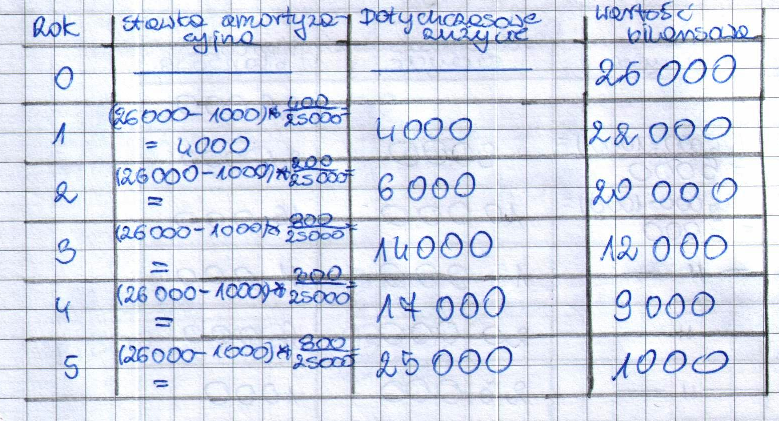 Rok Stawka amortyza- Dotychczasowe Wartość
cyjna zużycie bilansowa
0 26 000
1 (26000-1000)* 400/25000 = 4000 22 000
= 4000
2 (26000-1000)* 200/25000 = 6 000 20 000
=
3 (26000-1000)* 800/25000 = 14000 12 000
=
4 (26000-1000)* 300/25000 = 17 000 9 000
=
5 (26000-1000)* 800/25000 = 25 000 1000
=